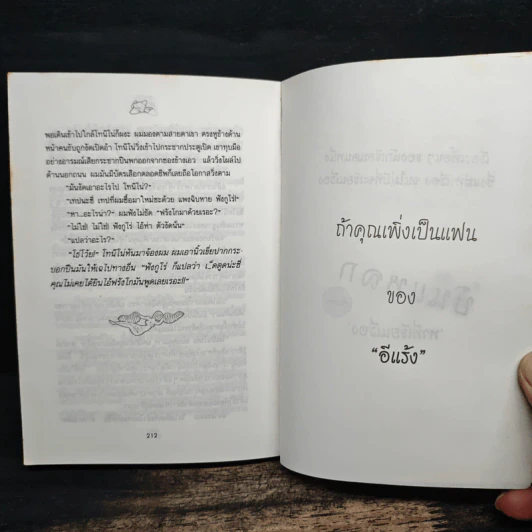 พอเดินเข้าไปใกล้โทนีโน่ก็ผงะ ผมมองตามสายตาเขา ตรงหูช้างด้าน
หน้าคนขับถูกงัดเปิดอ้า โทนีโน่วิ่งเข้าไปกระชากประตูเปิด เขาทุบมือ
อย่างอารมณ์เสียกระชากปืนพกออกจากซองข้างเอว แล้ววิ่งโผล่ไป
ด้านนอกถนน ผมมันมีบัตรเลิกตลอดชีพก็เลยถือโอกาสวิ่งตาม
"มันงัดเอาอะไรไป โทนีโน่?"
"เทปน่ะซี เทปที่ผมซื้อมาใหม่ซะด้วย แพงฉิบหาย ฟังกูโร่!"
"หา...อะไรน่า?" ผมฟังไม่ชัด "ฟรังโกมาด้วยเรอะ?"
"ไม่ใช่! ไม่ใช่! ฟังกูโร่ ไอ้ห่า ตัวงัดนั่น"
"แปลว่าอะไร?"
"โธ่โว้ย!" โทนีโน่หันมาจ้องผม ผมเอานิ้วเขี่ยปากกระ
บอกปืนมันให้เฉไปทางอื่น "ฟังกูโร่ ก็แปลว่า เ_็ดตูดน่ะซี
คุณไม่เคยได้ยินไอ้ฟรังโกมันพูดเลยเรอะ!!"
212
ถ้าคุณเพิ่งเป็นแฟน
ของ
"อีแร้ง"